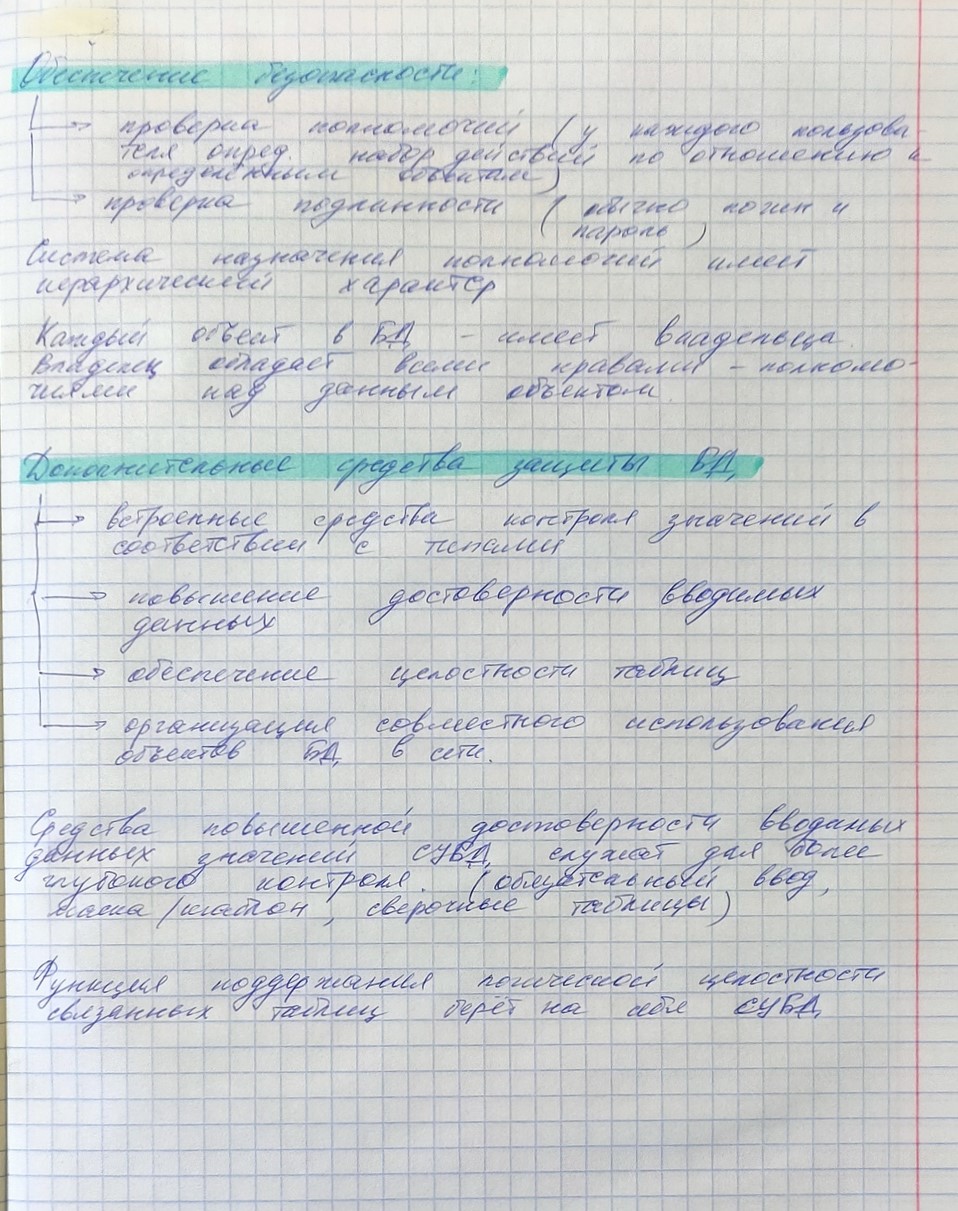 Обеспечение безопасности:
проверка полномочий (у каждого пользова-
теля опред. набор действий по отношению к
определённым объектам)
проверка подлинности (обычно логин и
пароль)
Система назначения полномочий имеет
иерархический характер
Каждый объект в БД - имеет владельца.
Владелец обладает всеми правами - полномо-
чиями над данным объектом.
Дополнительные средства защиты БД
встроенные средства контроля значений в
соответствии с типами
повышение достоверности вводимых
данных
обеспечение целостности таблиц
организация совместного использования
объектов БД в сети.
Средства повышенной достоверности вводимых
данных значений СУБД служат для более
глубокого контроля. (обязательный ввод,
маска/шаблон, сверочные таблицы)
Функция поддержания логической целостности
связанных таблиц берёт на себя СУБД